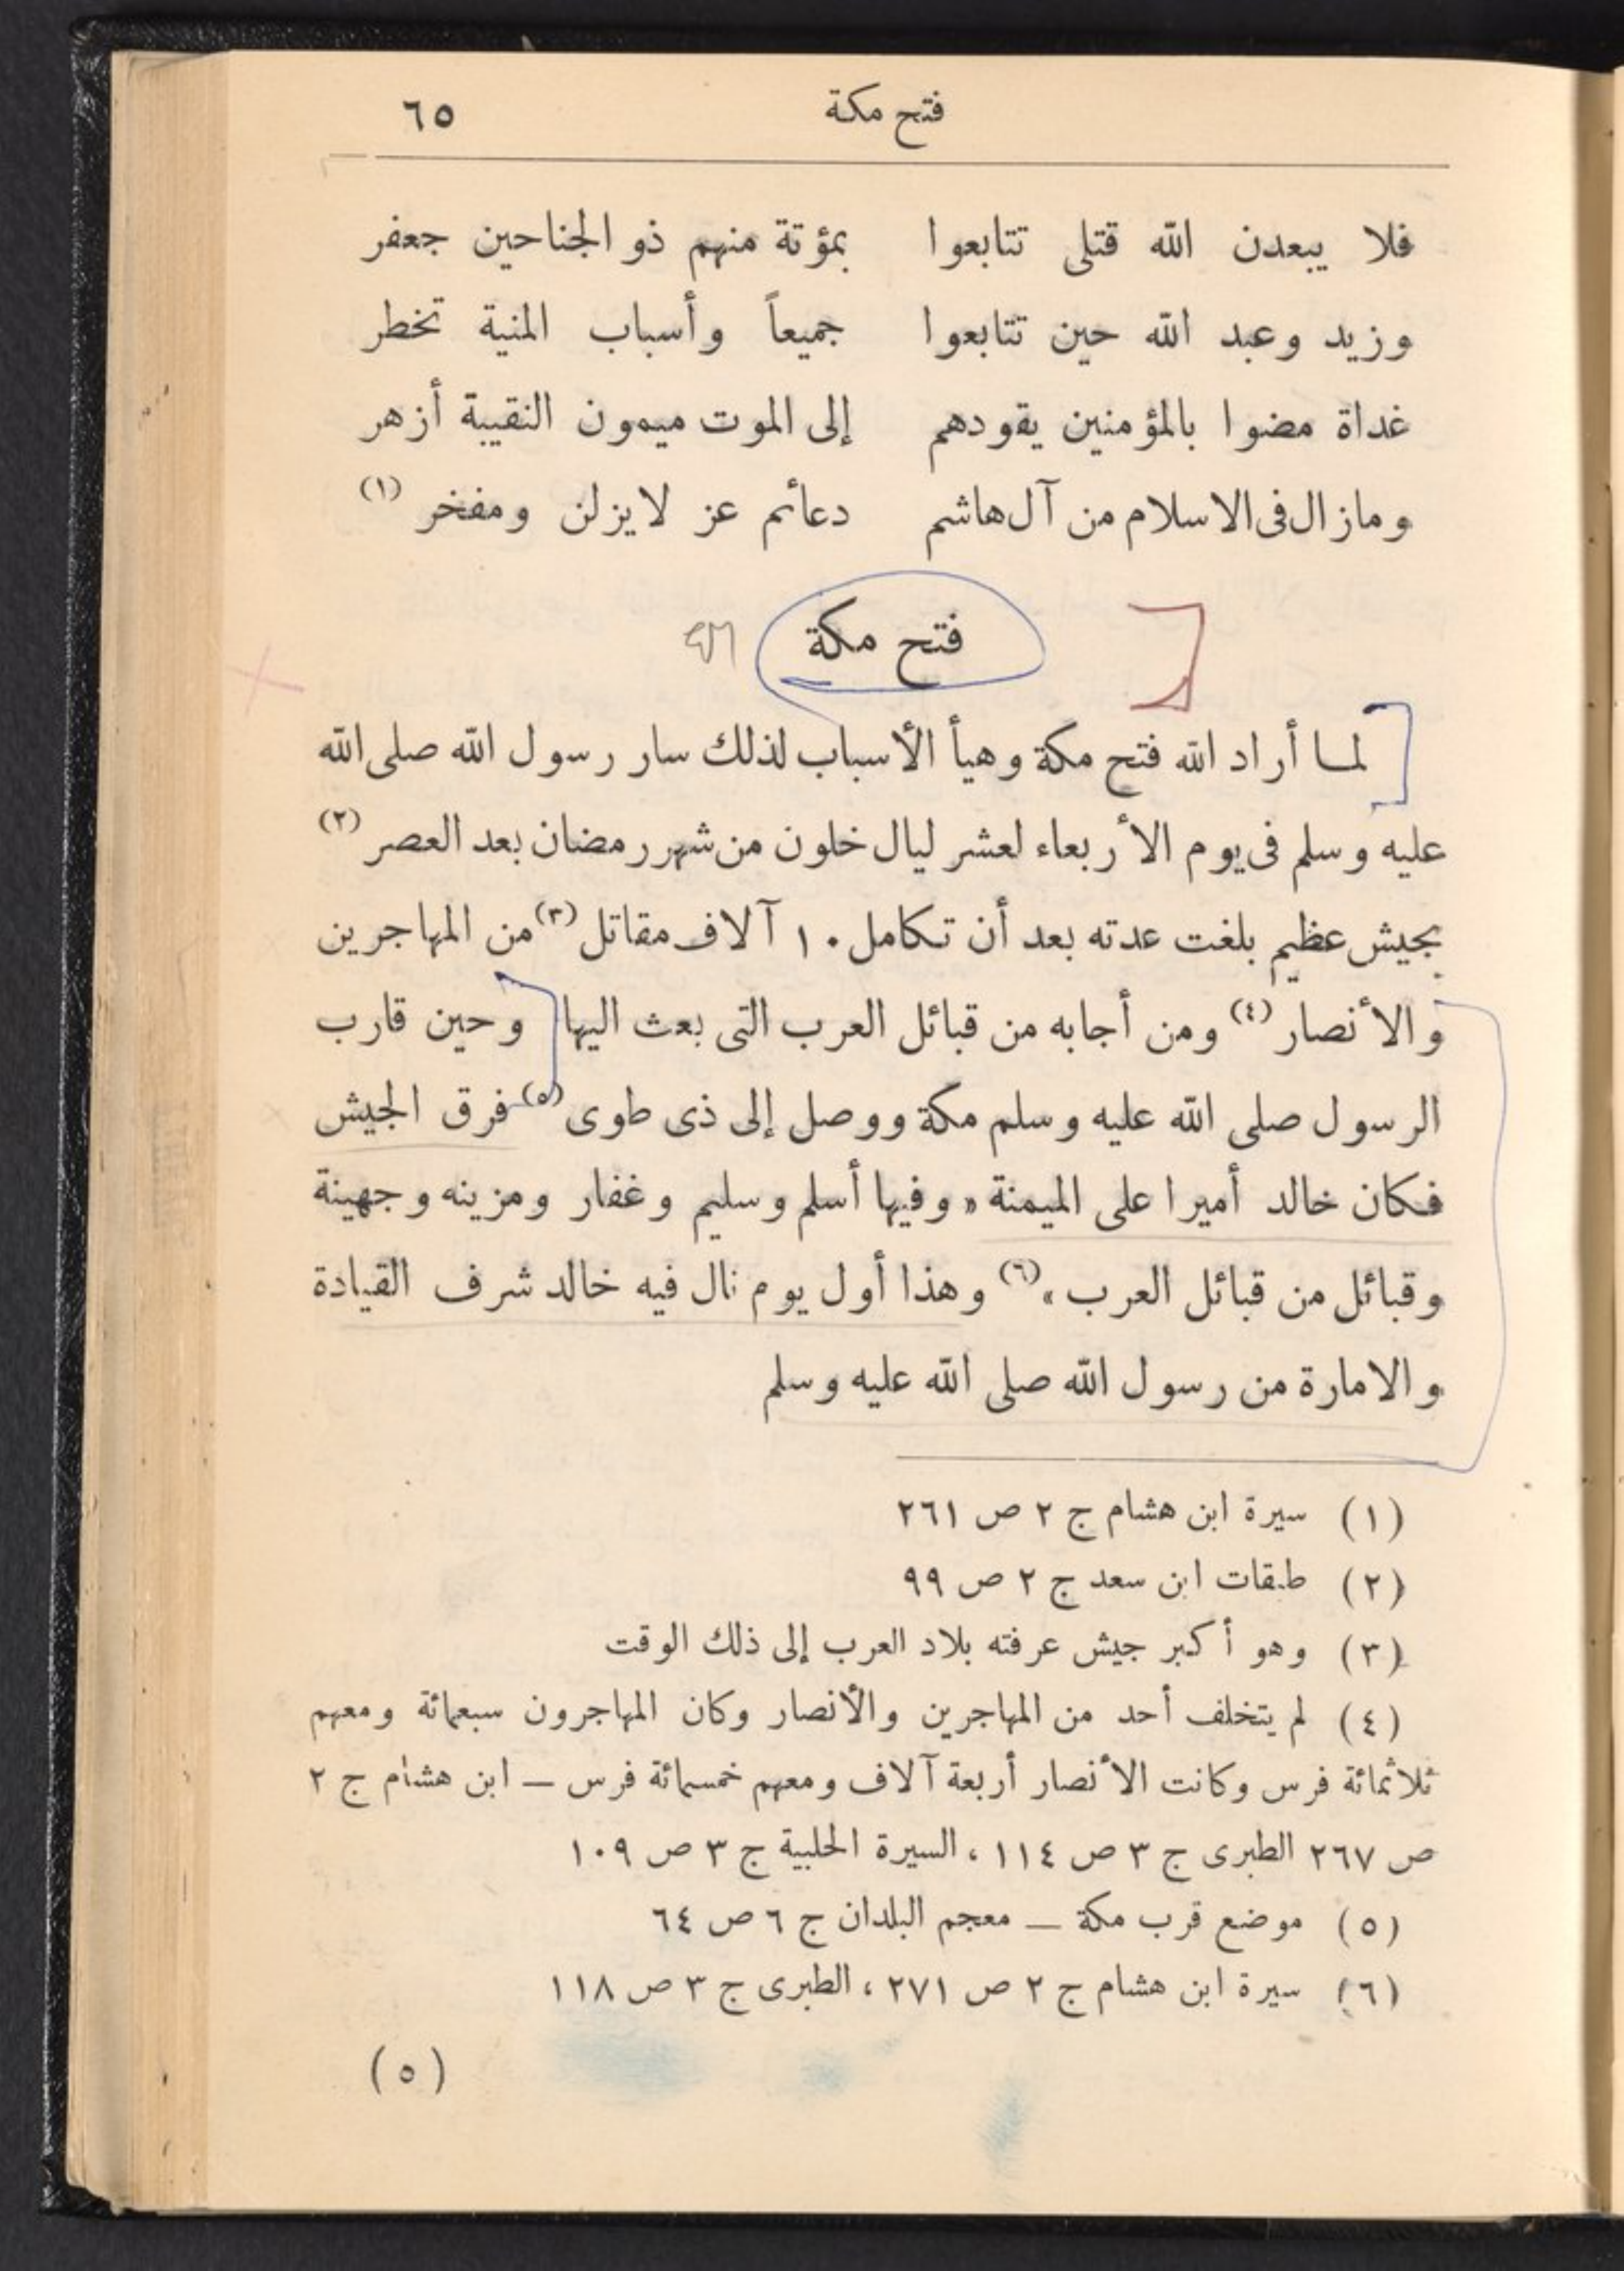 فتح مكة ٦٥
فلا يبعدن الله قتلى تتابعوا بمؤتة منهم ذو الجناحين جعفر
وزيد وعبد الله حين تتابعوا جميعاً وأسباب المنية تخطر
غداة مضوا بالمؤمنين يقودهم إلى الموت ميمون النقيبة أزهر
وما زال فى الاسلام من آل هاشم دعائم عز لا يزلن ومفخر (١)
فتح مكة
لما أراد الله فتح مكة وهيأ الأسباب لذلك سار رسول الله صلى الله
عليه وسلم فى يوم الأربعاء لعشر ليال خلون من شهر رمضان بعد العصر (٢)
بجيش عظيم بلغت عدته بعد أن تكامل ١٠ آلاف مقاتل (٣) من المهاجرين
والأنصار (٤) ومن أجابه من قبائل العرب التى بعث اليها وحين قارب
الرسول صلى الله عليه وسلم مكة ووصل إلى ذى طوى (٥) فرق الجيش
فكان خالد أميرا على الميمنة « وفيها أسلم وسليم وغفار ومزينه وجهينة
وقبائل من قبائل العرب » (٦) وهذا أول يوم نال فيه خالد شرف القيادة
والامارة من رسول الله صلى الله عليه وسلم
(١) سيرة ابن هشام ج ٢ ص ٢٦١
(٢) طبقات ابن سعد ج ٢ ص ٩٩
(٣) وهو أكبر جيش عرفته بلاد العرب إلى ذلك الوقت
(٤) لم يتخلف أحد من المهاجرين والأنصار وكان المهاجرون سبعمائة ومعهم
ثلاثمائة فرس وكانت الأنصار أربعة آلاف ومعهم خمسمائة فرس — ابن هشام ج ٢
ص ٢٦٧ الطبرى ج ٣ ص ١١٤ ، السيرة الحلبية ج ٣ ص ١٠٩
(٥) موضع قرب مكة — معجم البلدان ج ٦ ص ٦٤
(٦) سيرة ابن هشام ج ٢ ص ٢٧١ ، الطبرى ج ٣ ص ١١٨
(٥)